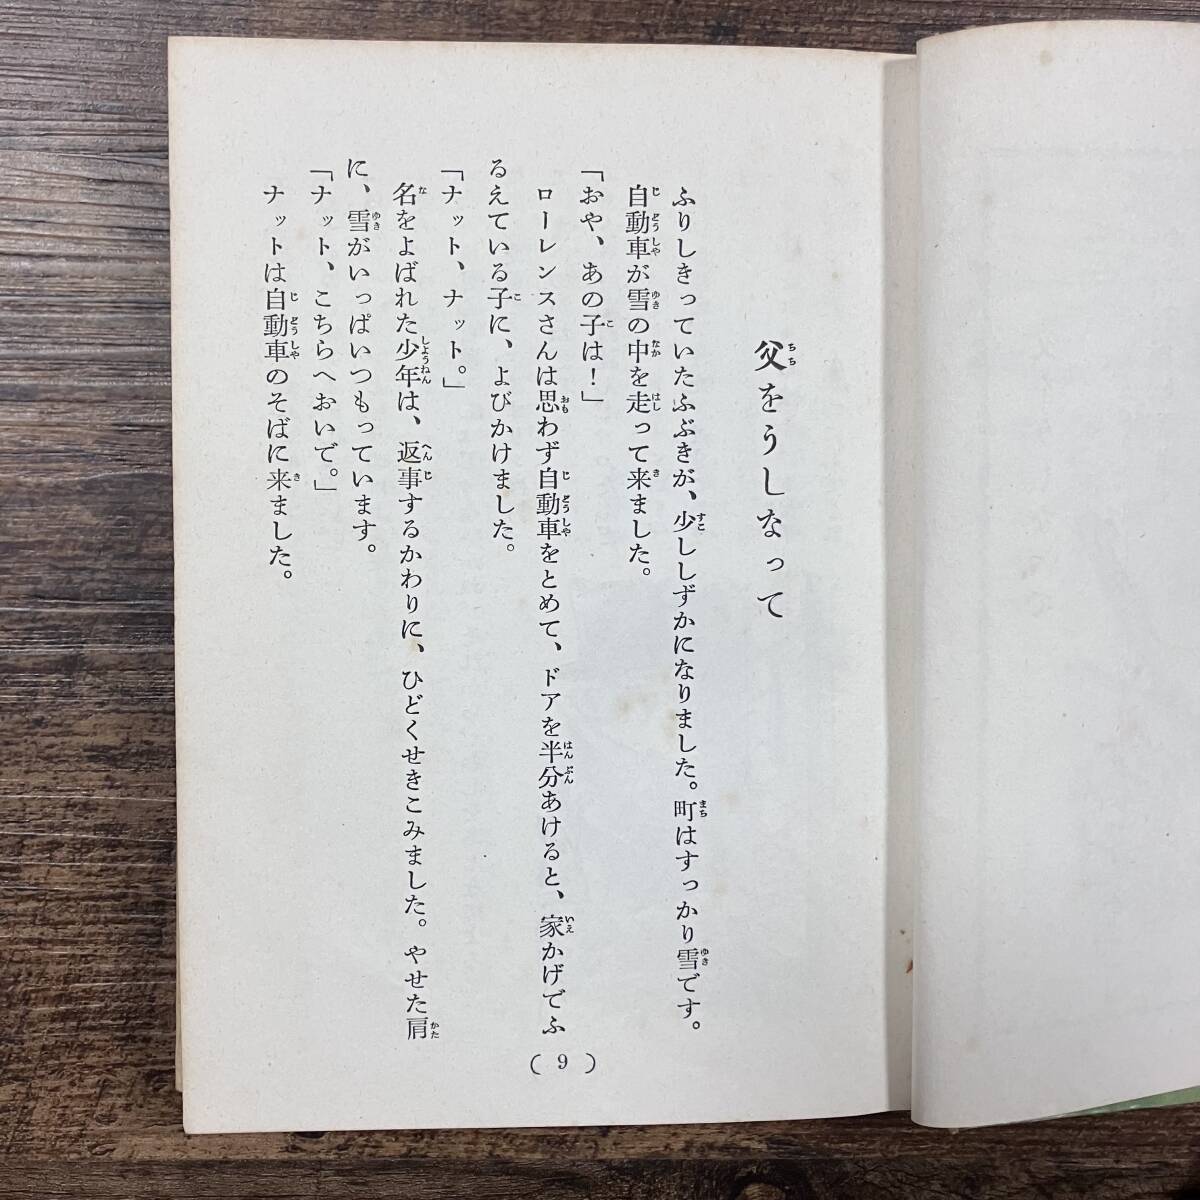 父をうしなって
ふりしきっていたふぶきが、少ししずかになりました。町はすっかり雪です。
自動車が雪の中を走って来ました。
「おや、あの子は！」
ローレンスさんは思わず自動車をとめて、ドアを半分あけると、家かげでふ
るえている子に、よびかけました。
「ナット、ナット。」
名をよばれた少年は、返事するかわりに、ひどくせきこみました。やせた肩
に、雪がいっぱいつもっています。
「ナット、こちらへおいで。」
ナットは自動車のそばに来ました。
( 9 )